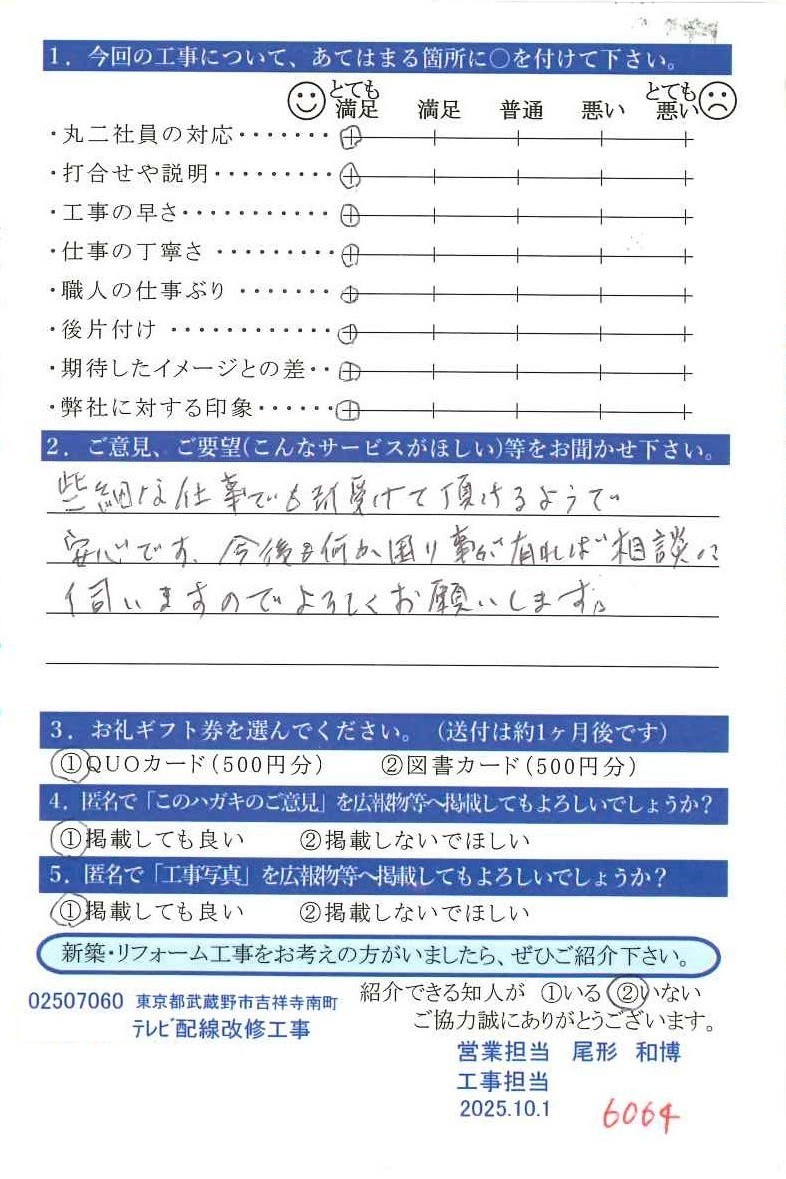 1．今回の工事について、あてはまる箇所に○を付けて下さい。
とても満足 満足 普通 悪い とても悪い
・丸二社員の対応・・・・・・・
・打合せや説明・・・・・・・・・
・工事の早さ・・・・・・・・・・・
・仕事の丁寧さ ・・・・・・・・・
・職人の仕事ぶり ・・・・・・・
・後片付け ・・・・・・・・・・・・
・期待したイメージとの差・・
・弊社に対する印象・・・・・・
2．ご意見、ご要望(こんなサービスがほしい)等をお聞かせ下さい。
些細な仕事でも引受けて頂けるようで
安心です、今後も何か困り事が有れば相談に
伺いますのでよろしくお願いします。
3．お礼ギフト券を選んでください。（送付は約1ヶ月後です）
①QUOカード（500円分） ②図書カード（500円分）
4．匿名で「このハガキのご意見」を広報物等へ掲載してもよろしいでしょうか？
①掲載しても良い ②掲載しないでほしい
5．匿名で「工事写真」を広報物等へ掲載してもよろしいでしょうか？
①掲載しても良い ②掲載しないでほしい
新築・リフォーム工事をお考えの方がいましたら、ぜひご紹介下さい。
紹介できる知人が ①いる ②いない
02507060 東京都武蔵野市吉祥寺南町
テレビ配線改修工事
ご協力誠にありがとうございます。
営業担当 尾形 和博
工事担当
2025.10.1
6064